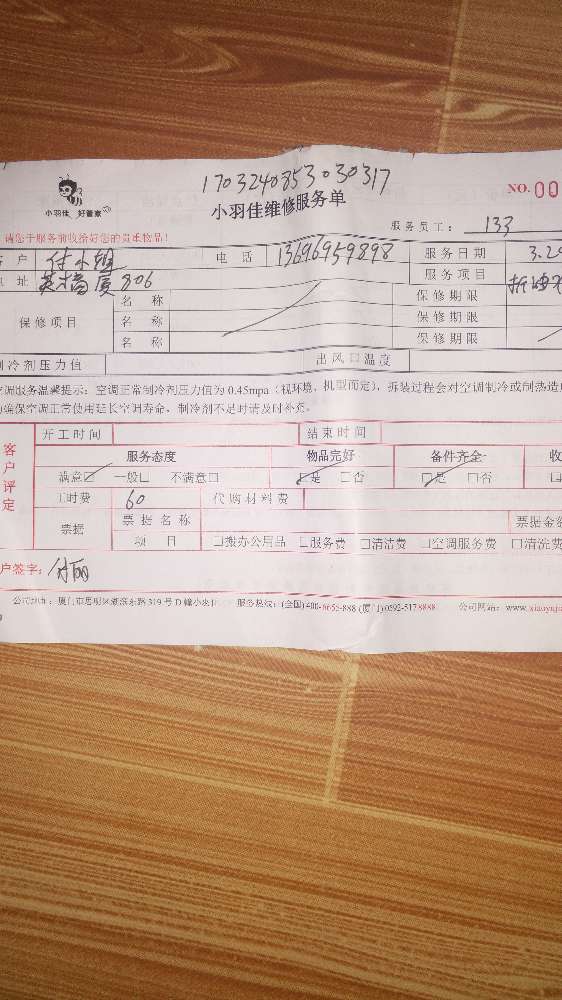 1703240853030317
小羽佳 好管家
小羽佳维修服务单
NO. 00
服务员工: 133
请您于服务前收拾好您的贵重物品!
户 付小姐 电 话 13696959898 服务日期 3.2
址 806 服务项目
保修项目 名 称 保修期限
名 称 保修期限
名 称 保修期限
制冷剂压力值 出风口温度
调服务温馨提示: 空调正常制冷剂压力值为 0.45mpa (视环境、机型而定), 拆装过程会对空调制冷或制热造
确保空调正常使用延长空调寿命, 制冷剂不足时请及时补充。
客户评定 开工时间 结束时间
服务态度 物品完好 备件齐全 收
满意☑ 一般□ 不满意□ ☑是 □否 ☑是 □否
工时费 60 代购材料费
票据 票据名称 票据金
项 目 □搬办公用品 □服务费 □清洁费 □空调服务费 □清洗费
户签字: 付丽
公司地址: 厦门市思明区 319 号 D 幢 服务热线: (全国)400-6655-888 (厦门)0592-5178888 公司网站: www.xiaoyuj